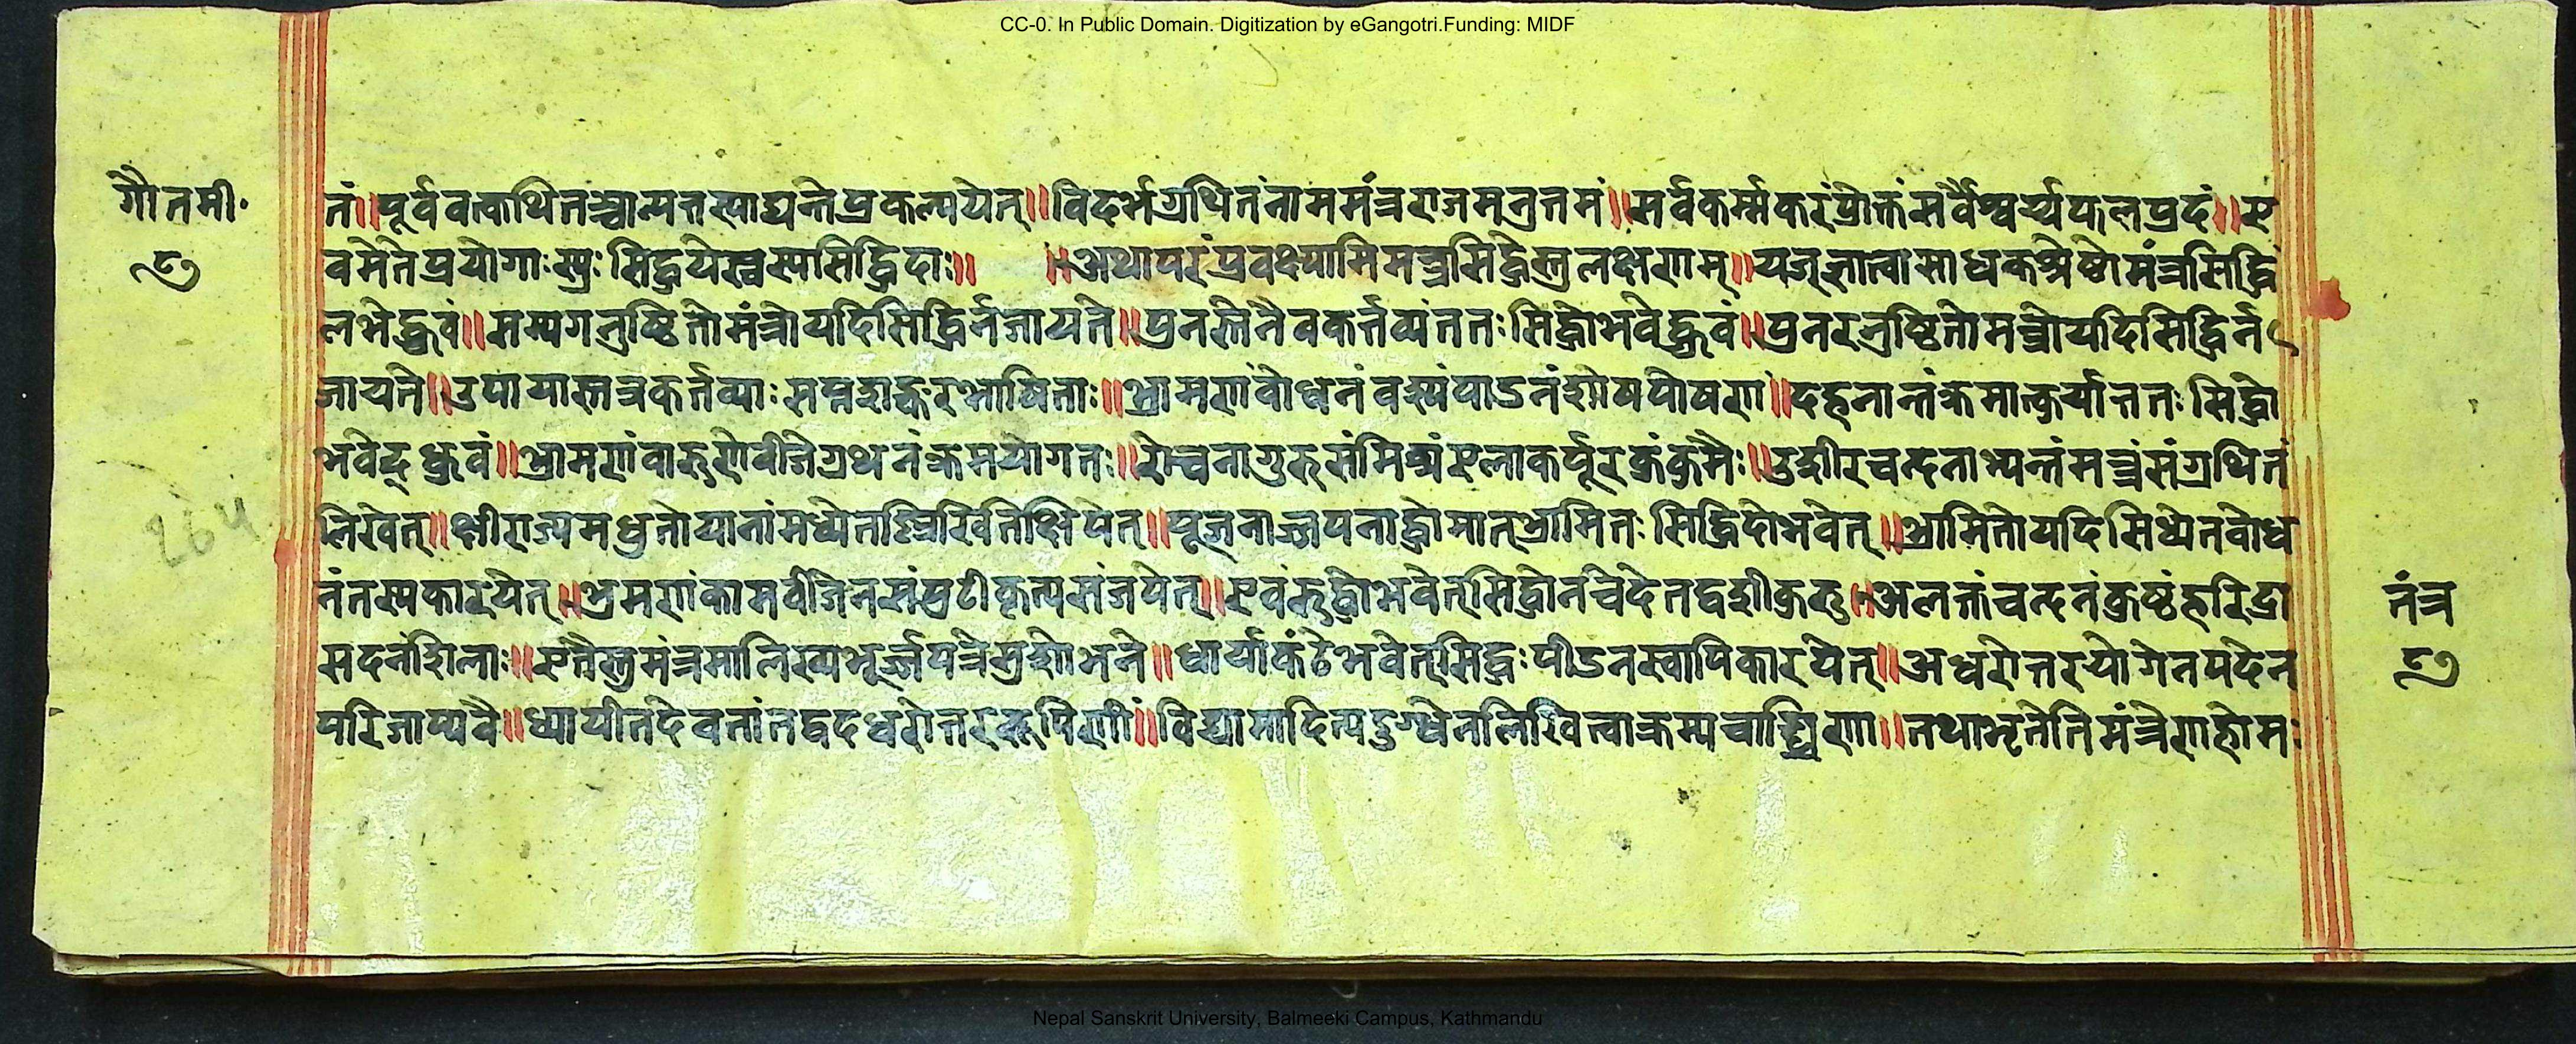 CC-0. In Public Domain. Digitization by eGangotri.Funding: MIDF
गौतमी॰
८७
तं॥पूर्ववत्कथितञ्चान्यत्तस्याद्यन्तेप्रकल्पयेत्॥विदर्भग्रथितंनाममंत्रराजमनुत्तमं॥सर्वकर्म्मकरंप्रोक्तंसर्वैश्वर्य्यफलप्रदं॥ए
वमेतेप्रयोगाःस्युःसिद्धयेस्वस्यसिद्धिदाः॥ ॥अथापरंप्रवक्ष्यामिमन्त्रसिद्धेस्तुलक्षणम्॥यज्ज्ञात्वासाधकश्रेष्ठोमंत्रसिद्धिं
लभेद्ध्रुवं॥सम्यगनुष्ठितोमंत्रोयदिसिद्धिर्नजायते॥पुनस्तेनैवकर्त्तव्यंततःसिद्धोभवेद्ध्रुवं॥पुनरनुष्ठितोमन्त्रोयदिसिद्धिर्न
जायते॥उपायास्तत्रकर्त्तव्याःसप्तशङ्करभाषिताः॥भ्रामणंबोधनंवश्यंपीडनंशोषपोषणं॥दहनान्तंक्रमात्कुर्यात्ततःसिद्धो
भवेद्ध्रुवं॥भ्रामणंवारुणेबीजेग्रथनंक्रमयोगतः॥रोचनागुरुसंमिश्रंएलाकर्पूरकुंकुमैः॥उशीरचन्दनाभ्यन्तंमन्त्रंसंग्रथितं
लिखेत्॥क्षीराज्यमधुतोयानांमध्येतल्लिखितंक्षिपेत्॥पूजनाज्जपनाद्धोमात्भ्रामितःसिद्धिदोभवेत्॥भ्रामितोयदिसिध्येतबोध
नंतस्यकारयेत्॥भ्रमणंकामबीजेनसंपुटीकृत्यसंजपेत्॥एवंरुद्धोभवेत्सिद्धोनचेदेतद्वशीकुरु॥अलक्तंचन्दनंकुष्ठंहरिद्रा
मदनंशिला॥एतैस्तुमंत्रमालिख्यभूर्ज्जपत्रेसुशोभने॥धार्याकंठेभवेत्सिद्धःपीडनंस्वापिकारयेत्॥अधरोत्तरयोगेनपदेन
परिजाप्यवै॥ध्यायीतदेवतांतद्वदधरोत्तररूपिणीं॥विद्यामादित्यदुग्धेनलिखित्वाक्रम्यचाङ्घ्रिणा॥तथाभूतेतिमंत्रेणहोमः
तंत्र
८७
264
Nepal Sanskrit University, Balmeeki Campus, Kathmandu